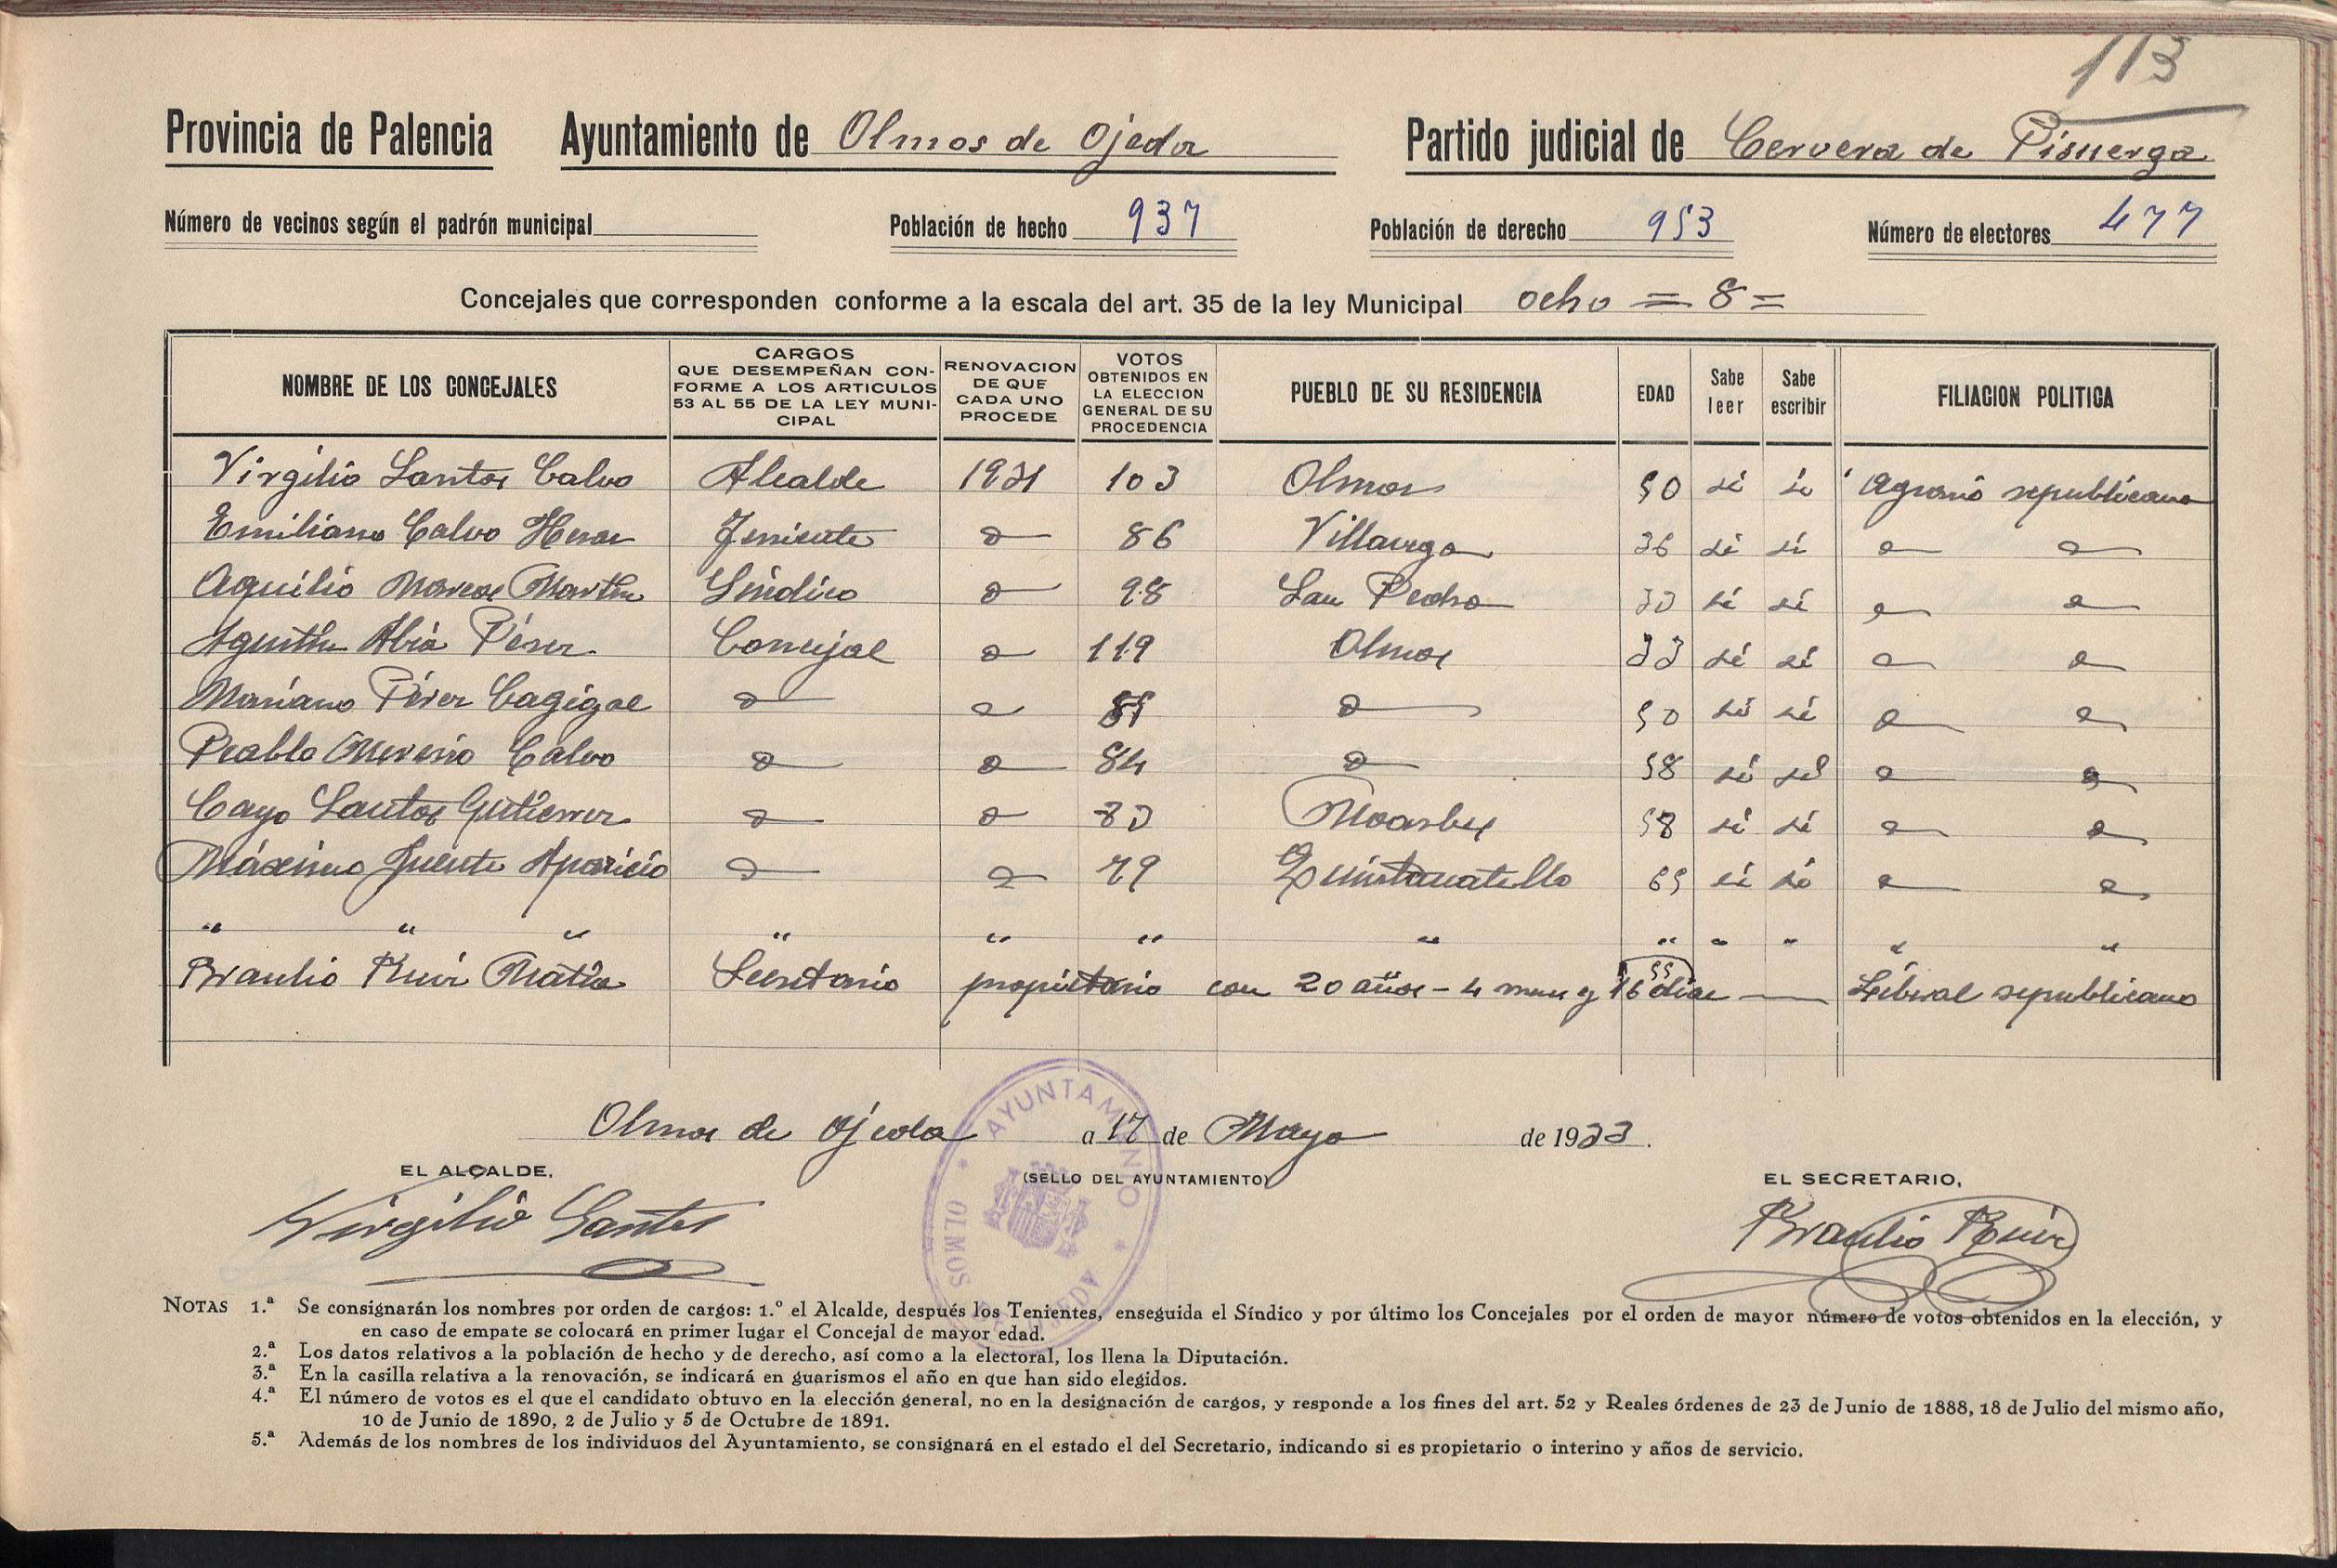 113
Provincia de Palencia Ayuntamiento de Olmos de Ojeda Partido judicial de Cervera de Pisuerga
Número de vecinos según el padrón municipal Población de hecho 937 Población de derecho 953 Número de electores 477
Concejales que corresponden conforme a la escala del art. 35 de la ley Municipal ocho = 8 =
NOMBRE DE LOS CONCEJALES CARGOS QUE DESEMPEÑAN CONFORME A LOS ARTICULOS 53 AL 55 DE LA LEY MUNICIPAL RENOVACION DE QUE CADA UNO PROCEDE VOTOS OBTENIDOS EN LA ELECCION GENERAL DE SU PROCEDENCIA PUEBLO DE SU RESIDENCIA EDAD Sabe leer Sabe escribir FILIACION POLITICA
Virgilio Santos Calvo Alcalde 1931 103 Olmos 50 si si Agrario republicano
Emiliano Calvo Heras Teniente 86 Villavega 36 si si
Aquilio Marcos Martin Sindico 98 San Pedro 33 si si
Agustin Abia Pérez Concejal 119 Olmos 33 si si
Mariano Pérez Cagigal 50 si si
Pablo Merino Calvo 84 58 si si
Cayo Santos Gutierrez 83 Moarbes 58 si si
Máximo Fuente Aparicio 79 Quintanatello 65 si si
" " " " " " " " " " " "
Braulio Ruiz Matia Secretario propietario con 20 años - 4 meses y 16 dias 55 Liberal republicano
Olmos de Ojeda a 17 de Mayo de 1933.
EL ALCALDE, (SELLO DEL AYUNTAMIENTO) EL SECRETARIO,
Virgilio Santos Braulio Ruiz
AYUNTAMIENTO * OLMOS
NOTAS 1.ª Se consignarán los nombres por orden de cargos: 1.º el Alcalde, después los Tenientes, enseguida el Síndico y por último los Concejales por el orden de mayor número de votos obtenidos en la elección, y
en caso de empate se colocará en primer lugar el Concejal de mayor edad.
2.ª Los datos relativos a la población de hecho y de derecho, así como a la electoral, los llena la Diputación.
3.ª En la casilla relativa a la renovación, se indicará en guarismos el año en que han sido elegidos.
4.ª El número de votos es el que el candidato obtuvo en la elección general, no en la designación de cargos, y responde a los fines del art. 52 y Reales órdenes de 23 de Junio de 1888, 18 de Julio del mismo año,
10 de Junio de 1890, 2 de Julio y 5 de Octubre de 1891.
5.ª Además de los nombres de los individuos del Ayuntamiento, se consignará en el estado el del Secretario, indicando si es propietario o interino y años de servicio.